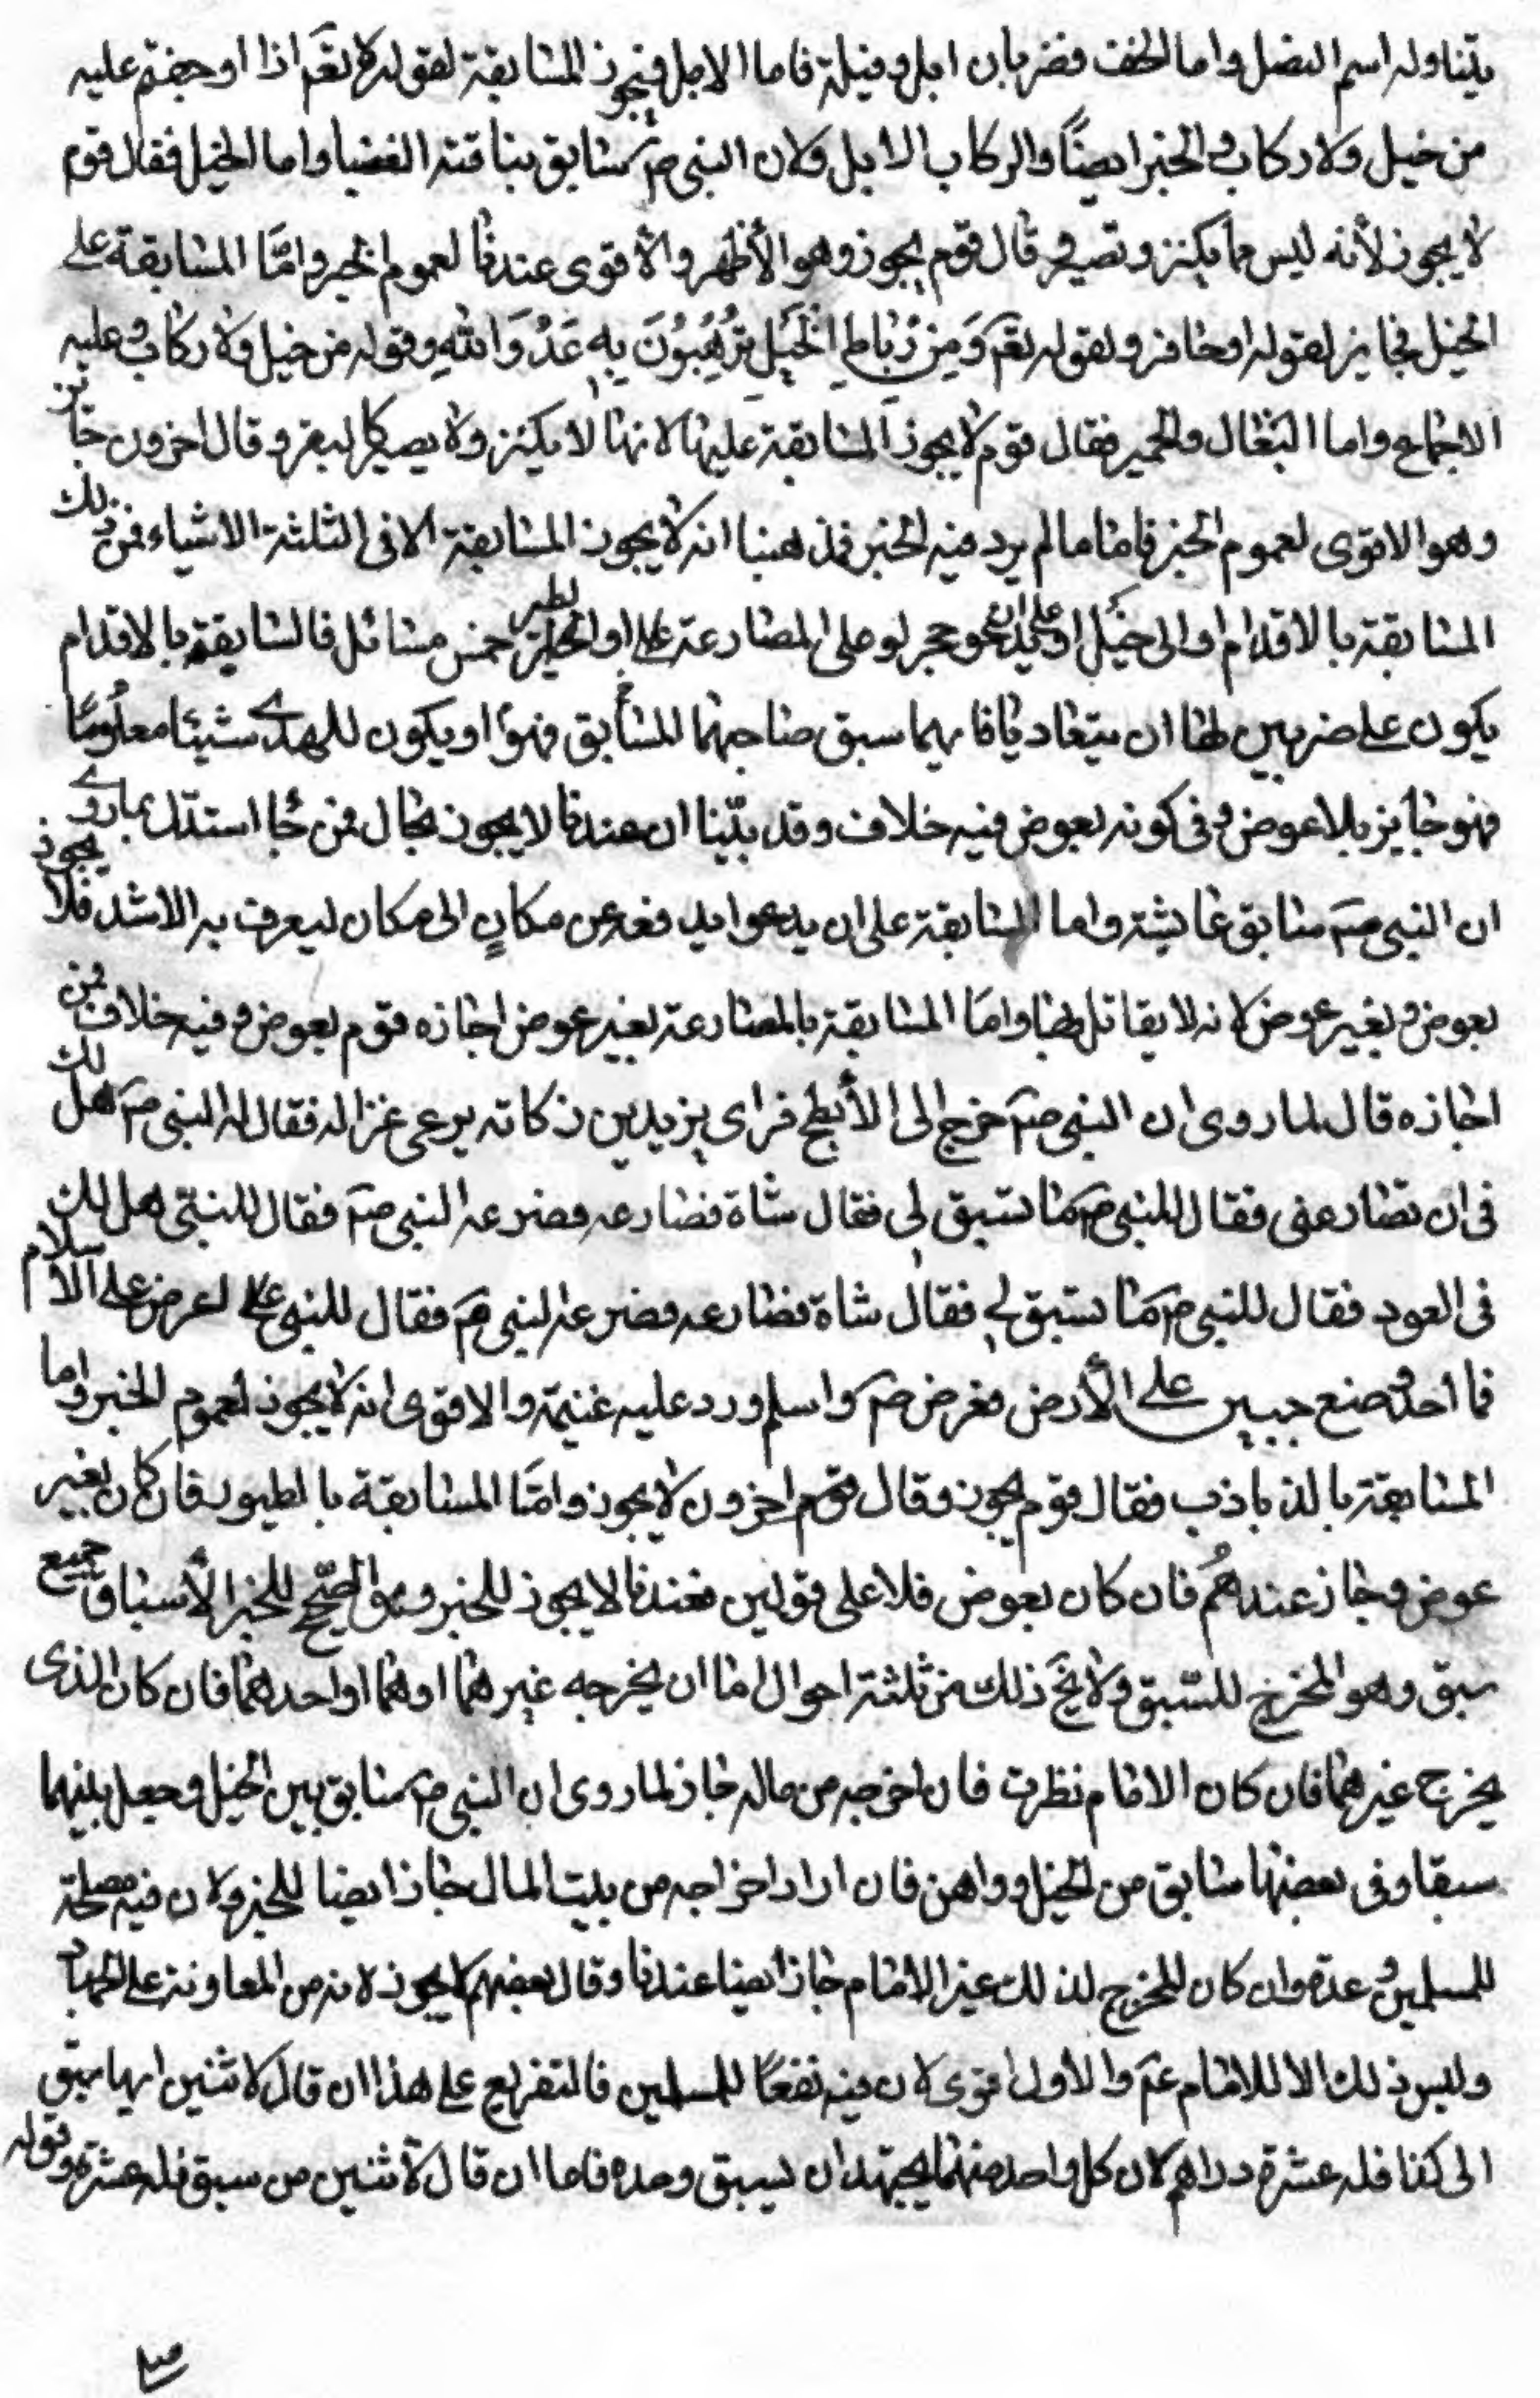 يتناوله اسم النصل واما الخف فضربان ابل وفيلة فاما الابل فيجوز المسابقة لقوله تعم اذا اوجفتم عليه
من خيل ولا ركاب والخبر ايضًا والركاب الابل ولان النبى ص سابق بناقته الغضبا واما الخيل فقال قوم
لا يجوز لأنه ليس مما يكتر و قال قوم يجوز وهو الأظهر والأقوى عندنا لعموم الخبر وامّا المسابقة على
الخيل فجايز لقوله او حافر ولقوله تعم وَمِن رِّبَاطِ الخَيلِ تُرهِبُونَ بِهِ عَدُوَّ اللّهِ وقوله من خيل ولا ركاب وعليه
الاجماع واما البغال والحمير فقال قوم لا يجوز المسابقة عليها لانها لا يكتر ولا وقال اخرون جايز
وهو الاقوى لعموم الخبر فاما ما لم يرد فيه الخبر فمذهبنا انه لا يجوز المسابقة الا فى الثلثة الاشياء فمن ذلك
المسابقة بالاقدام او الى على ان يدحو حجر او على المصارعة او الطير خمس مسائل فالسابقة بالاقدام
يكون على ضربين اما ان يتعاديا فايهما سبق صاحبهما المسابق فهو او يكون للمدى شيئا معلومًا
فهو جايز بلا عوض وفى كونه بعوض فيه خلاف وقد بيّنا ان عندنا لا يجوز بحال فمن جا استدل بما روى
ان النبى صم سابق عايشة واما المسابقة على ان يدحوا من مكانٍ الى مكان ليعرف به الاشد فلا يجوز
بعوض وبغير عوض لانه لا يقاتل بها وامّا المسابقة بالمصارعة بغير عوض اجازه قوم بعوض وفيه خلاف فمن
اجازه قال لما روى ان النبى صم خرج الى الأبطح فراى يزيد بن ركانة يرعى غزاله فقال له النبى صم هل لك
فى ان تصارعنى فقال للنبى صم ما تسبق لى فقال شاة فصارعه فصرعه النبى صم فقال للنبى هل لك
فى العود فقال للنبى صم ما تسبق لى فقال شاة فصارعه فصرعه النبى صم فقال للنبى اعرض على الاسلام
فما احد وضع جبين على الأرض فعرض صم و اسلم ورد عليه غنيمة والاقوى انه لا يجوز لعموم الخبر واما
المسابقة بالذباذب فقال قوم يجوز وقال قوم اخرون لا يجوز وامّا المسابقة بالطيور فان كان بغير
عوض وجاز عندهُم فان كان بعوض فلا على قولين فعندنا لا يجوز للخبر وهو الصّحيح للخبر الأسباق جميع
سبق وهو المخرج للسّبق ولا يخ ذلك من ثلثة احوال اما ان يخرجه غيرهما او هما او احدهما فان كان الذى
يخرج غيرهما فان كان الامام نظرت فان اخرجه من ماله جاز لما روى ان النبى صم سابق بين الخيل وجعل بينهما
سبقا وفى بعضها سابق من الخيل وراهن فان اراد اخراجه من بيت المال جاز ايضا للخبر ولان فيه مصلحة
للمسلمين وعدة وان كان المخرج لذلك غير الامام جاز ايضا عندنا وقال بعضهم لا يجوز لانه من المعاونة على الجهاد
وليس ذلك الا للامام عم والأول اقوى لان فيه نفعًا للمسلمين فالتفريع على هذا ان قال لاثنين ايها سبق
الى كذا فله عشرة دراهم لان كل واحد منهما يجتهد ان يسبق وحده فاما ان قال لاثنين من سبق فله عشرة وقوله